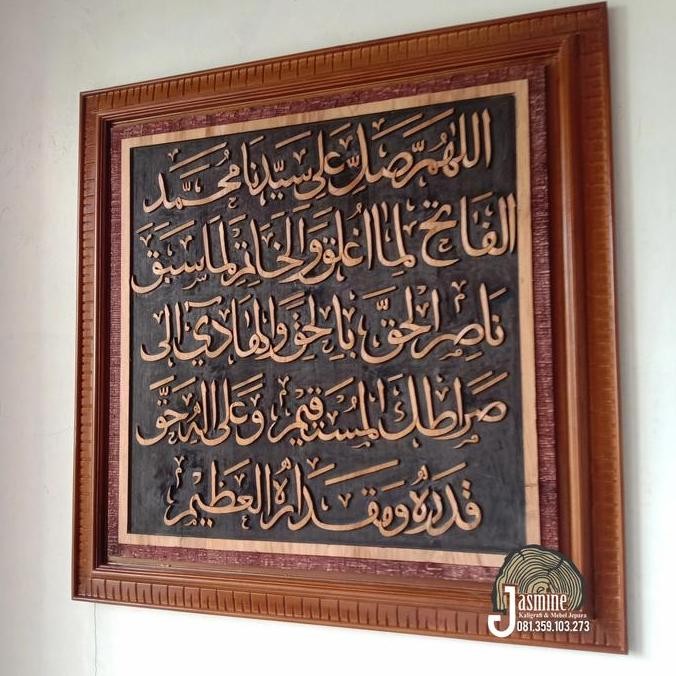 اللهم صل على سيدنا محمد
الفاتح لما اغلق والخاتم لما سبق
ناصر الحق بالحق والهادي الى
صراطك المستقيم وعلى اله حق
قدره ومقداره العظيم
Jasmine
Kaligrafi & Mebel Jepara
081.359.103.273